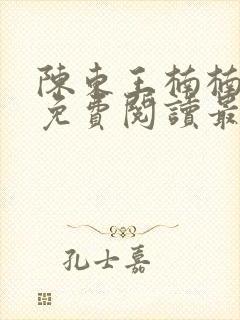 陳東王楠楠
免費閱讀最
孔士嘉